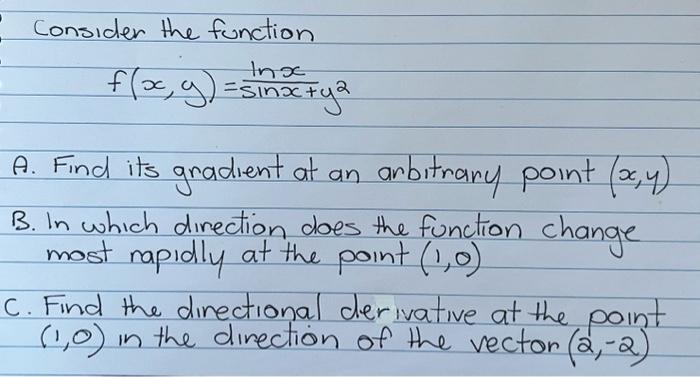 Consider the function
f(x,y) = lnx / sinx+y²
A. Find its gradient at an arbitrary point (x,y)
B. In which direction does the function change
most rapidly at the point (1,0)
C. Find the directional derivative at the point
(1,0) in the direction of the vector (2,-2)